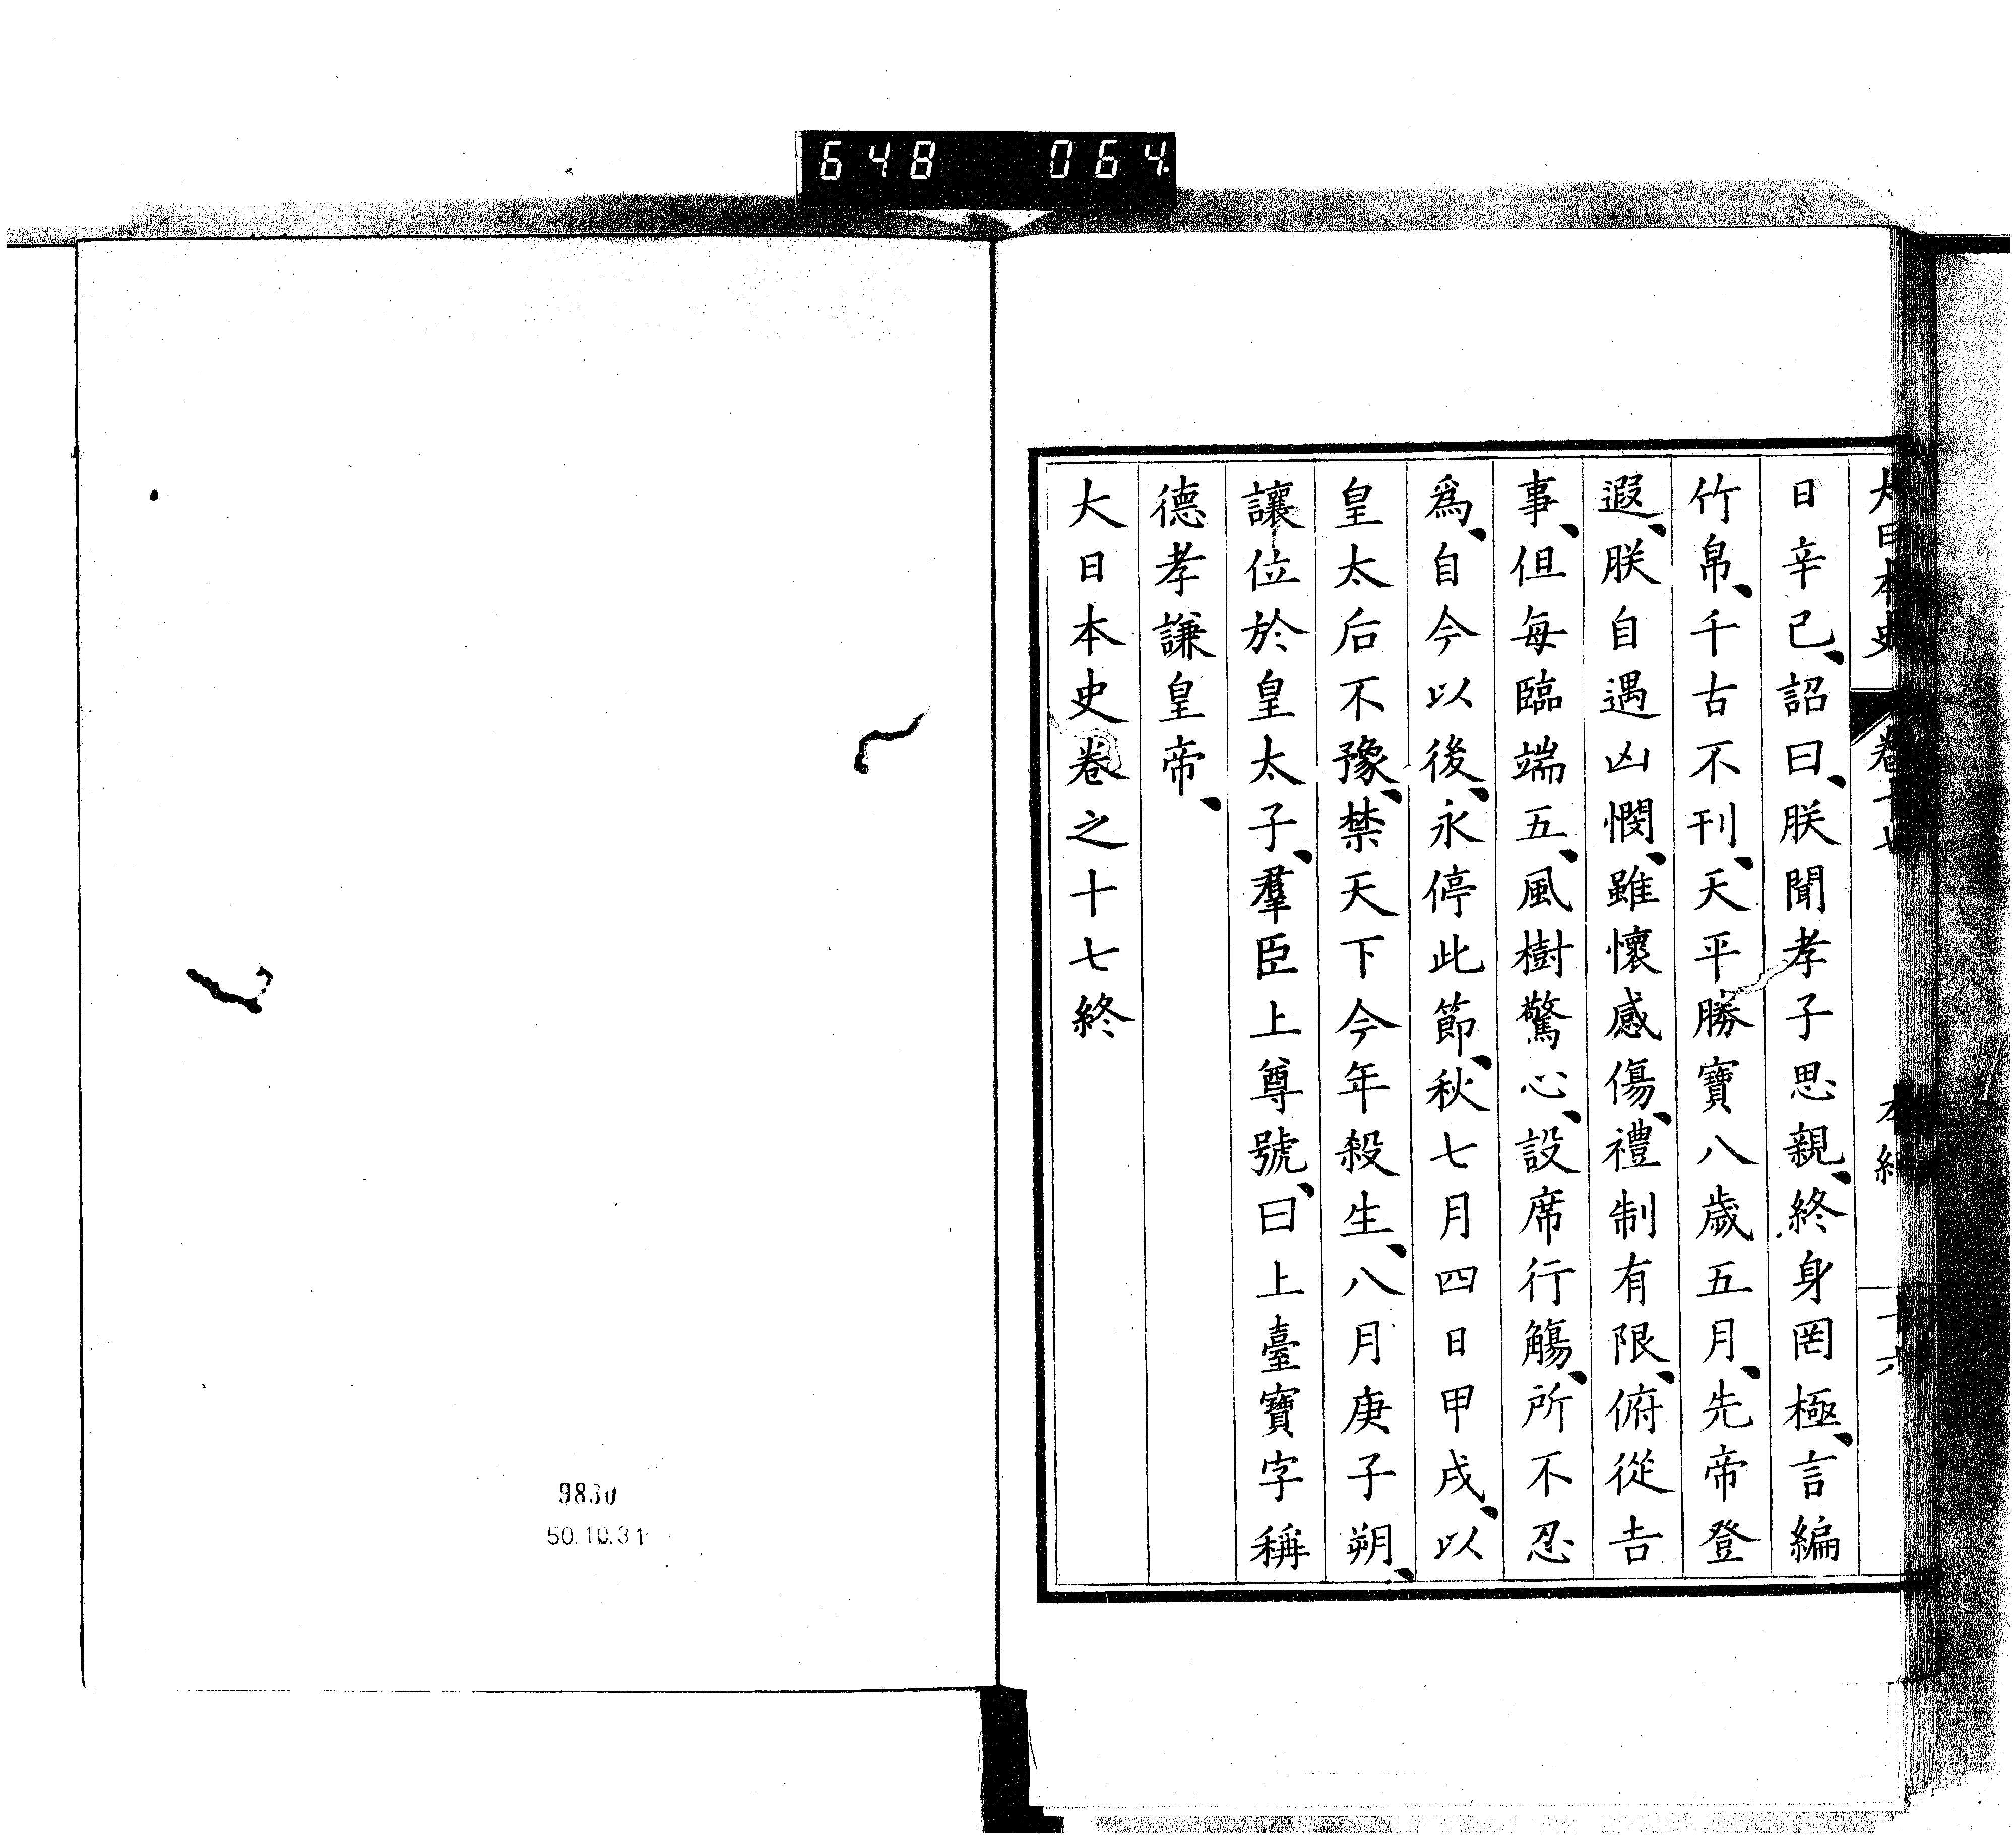 648 064
大日本史 卷十七 本紀 十六
日辛巳、詔曰、朕聞孝子思親、終身罔極、言編
竹帛、千古不刊、天平勝寶八歲五月、先帝登
遐、朕自遇凶憫、雖懷感傷、禮制有限、俯從吉
事、但每臨端五、風樹驚心、設席行觴、所不忍
爲、自今以後、永停此節、秋七月四日甲戌、以
皇太后不豫、禁天下今年殺生、八月庚子朔、
讓位於皇太子、羣臣上尊號、曰上臺寶字稱
德孝謙皇帝、
大日本史卷之十七終
9830
50.10.31